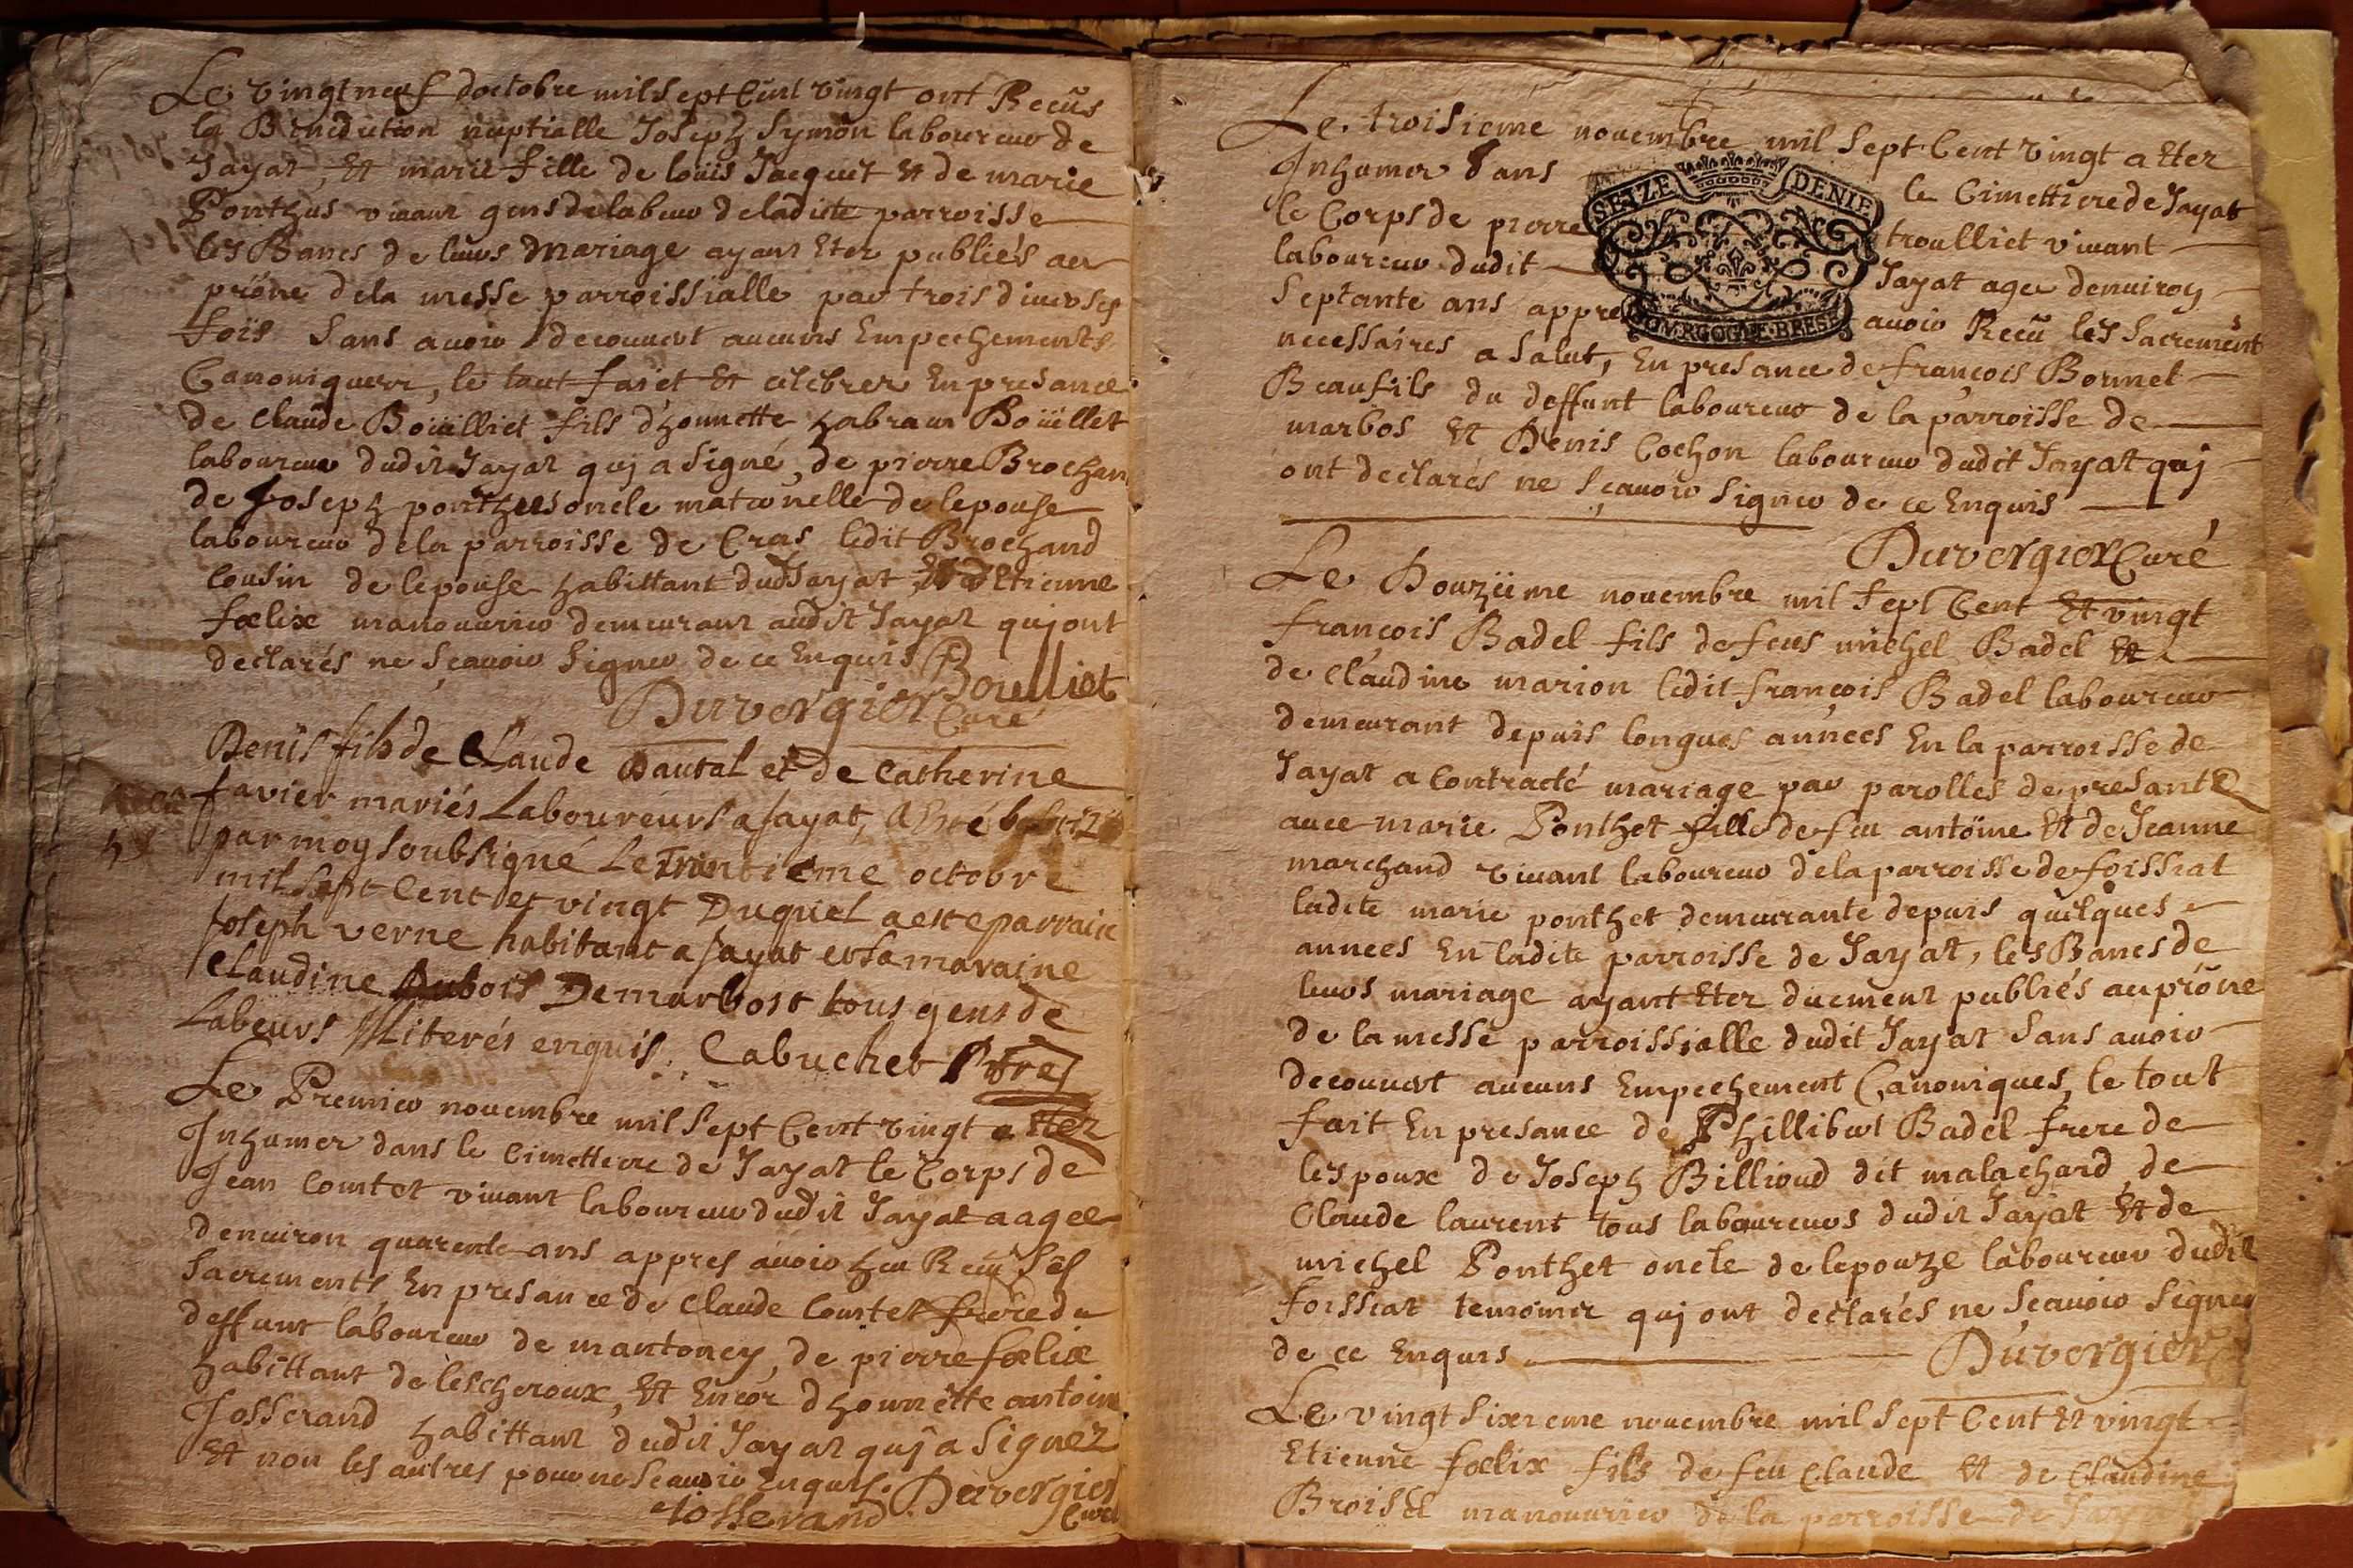 Le vingtneuf doctobre mil sept Cent vingt ont Recüs
la Benediction nuptialle Joseph Symon laboureur de
Jayat, Et marie fille de loüis Jacquet Et de marie
Ponthus vivant gens de labeur de ladicte parroisse
les Bancs de leurs Mariage ayant Eter publiés au
prône dela messe parroissialle par trois diverses
fois Sans avoir decouvert aucuns Empechements
Canoniques, le tout faict Et celebrer En presance
de Claude Boüilliet fils d'honnette habraam Boüillet
laboureur dudit Jayat qui a Signé, de pierre Brochan
de Joseph ponthus oncle maternelle de lepouse
laboureur dela parroisse de Cras ledit Brochand
Cousin de lepouse habittant dud Jayat Et d Etienne
foelix manouvrier demeurant audit Jayat qui ont
declarés ne Sçavoir Signer de ce Enquis
Bouilliet
Duvergier Curé
Denis fils de Claude Dautal et de Catherine
favier mariés Laboureurs a Jayat, A Esté
par moy soubsigné Le Trentieme octobre
mil sept Cent et vingt Duquel a esté parrain
Joseph verne habitant a Jayat et sa maraine
Claudine Dubois De marbost tous gens de
Labeurs illiterés enquis. Cabuchet Ptre
Le Premier novembre mil Sept Cent vingt a Eter
Inhumer dans le Cimettiere de Jayat le Corps de
Jean Comtet vivant laboureur dudit Jayat aagee
denviron quarente ans appres avoir heu Recu Ses
Sacrements En presance de Claude Comtet frere du
deffunt laboureur de mantoney, de pierre foelix
habittant de lescheroux, Et Encor dhonnette antoine
Josserand habittant dudit Jayat qui a Signez
Et non les autres pour ne Scavoir Enquis. Duvergier
Josserand Curé
Le troisieme novembre mil Sept Cent vingt a Eter
Inhumer dans le Cimettiere de Jayat
le Corps de pierre troulliet vivant
laboureur dudit Jayat agee denviron
Septante ans appres avoir Recu les Sacrement
SEIZE DENIE
BOVRGOGNE·BRESSE
necessaires a Salut, En presance de françois Bonnet
Beaufils du deffunt laboureur de la parroisse de
marbos Et Denis Cochon laboureur dudit Jayat qui
ont declarés ne Sçavoir Signer de ce Enquis
Duvergier Curé
Le Douzieme novembre mil Sept Cent Et vingt
françois Badel fils de feus michel Badel Et
de Claudine marion ledit françois Badel laboureur
demeurant depuis longues années En la parroisse de
Jayat a Contracté mariage par parolles de presante
avec marie Ponthet fille de feu antoine Et de Jeanne
marchand vivant laboureur dela parroisse de foissiat
ladite marie ponthet demeurante depuis quelques
annees En ladite parroisse de Jayat, les Bancs de
leurs mariage ayant Eter duement publiés au prône
de la messe parroissialle dudit Jayat Sans avoir
decouvert aucuns Empechement Canoniques, le tout
fait En presance de Phillibert Badel frere de
lespoux de Joseph Billioud dit malachard de
Claude laurent tous laboureurs dudit Jayat Et de
michel Ponthet oncle de lepouze laboureur dudit
foissiat temoins qui ont declarés ne Scavoir Signer
de ce Enquis Duvergier
Le vingt Sixieme novembre mil Sept Cent Et vingt
Etienne foelix fils de feu Claude Et de Claudine
Broisel manouvrier de la parroisse de Jayat